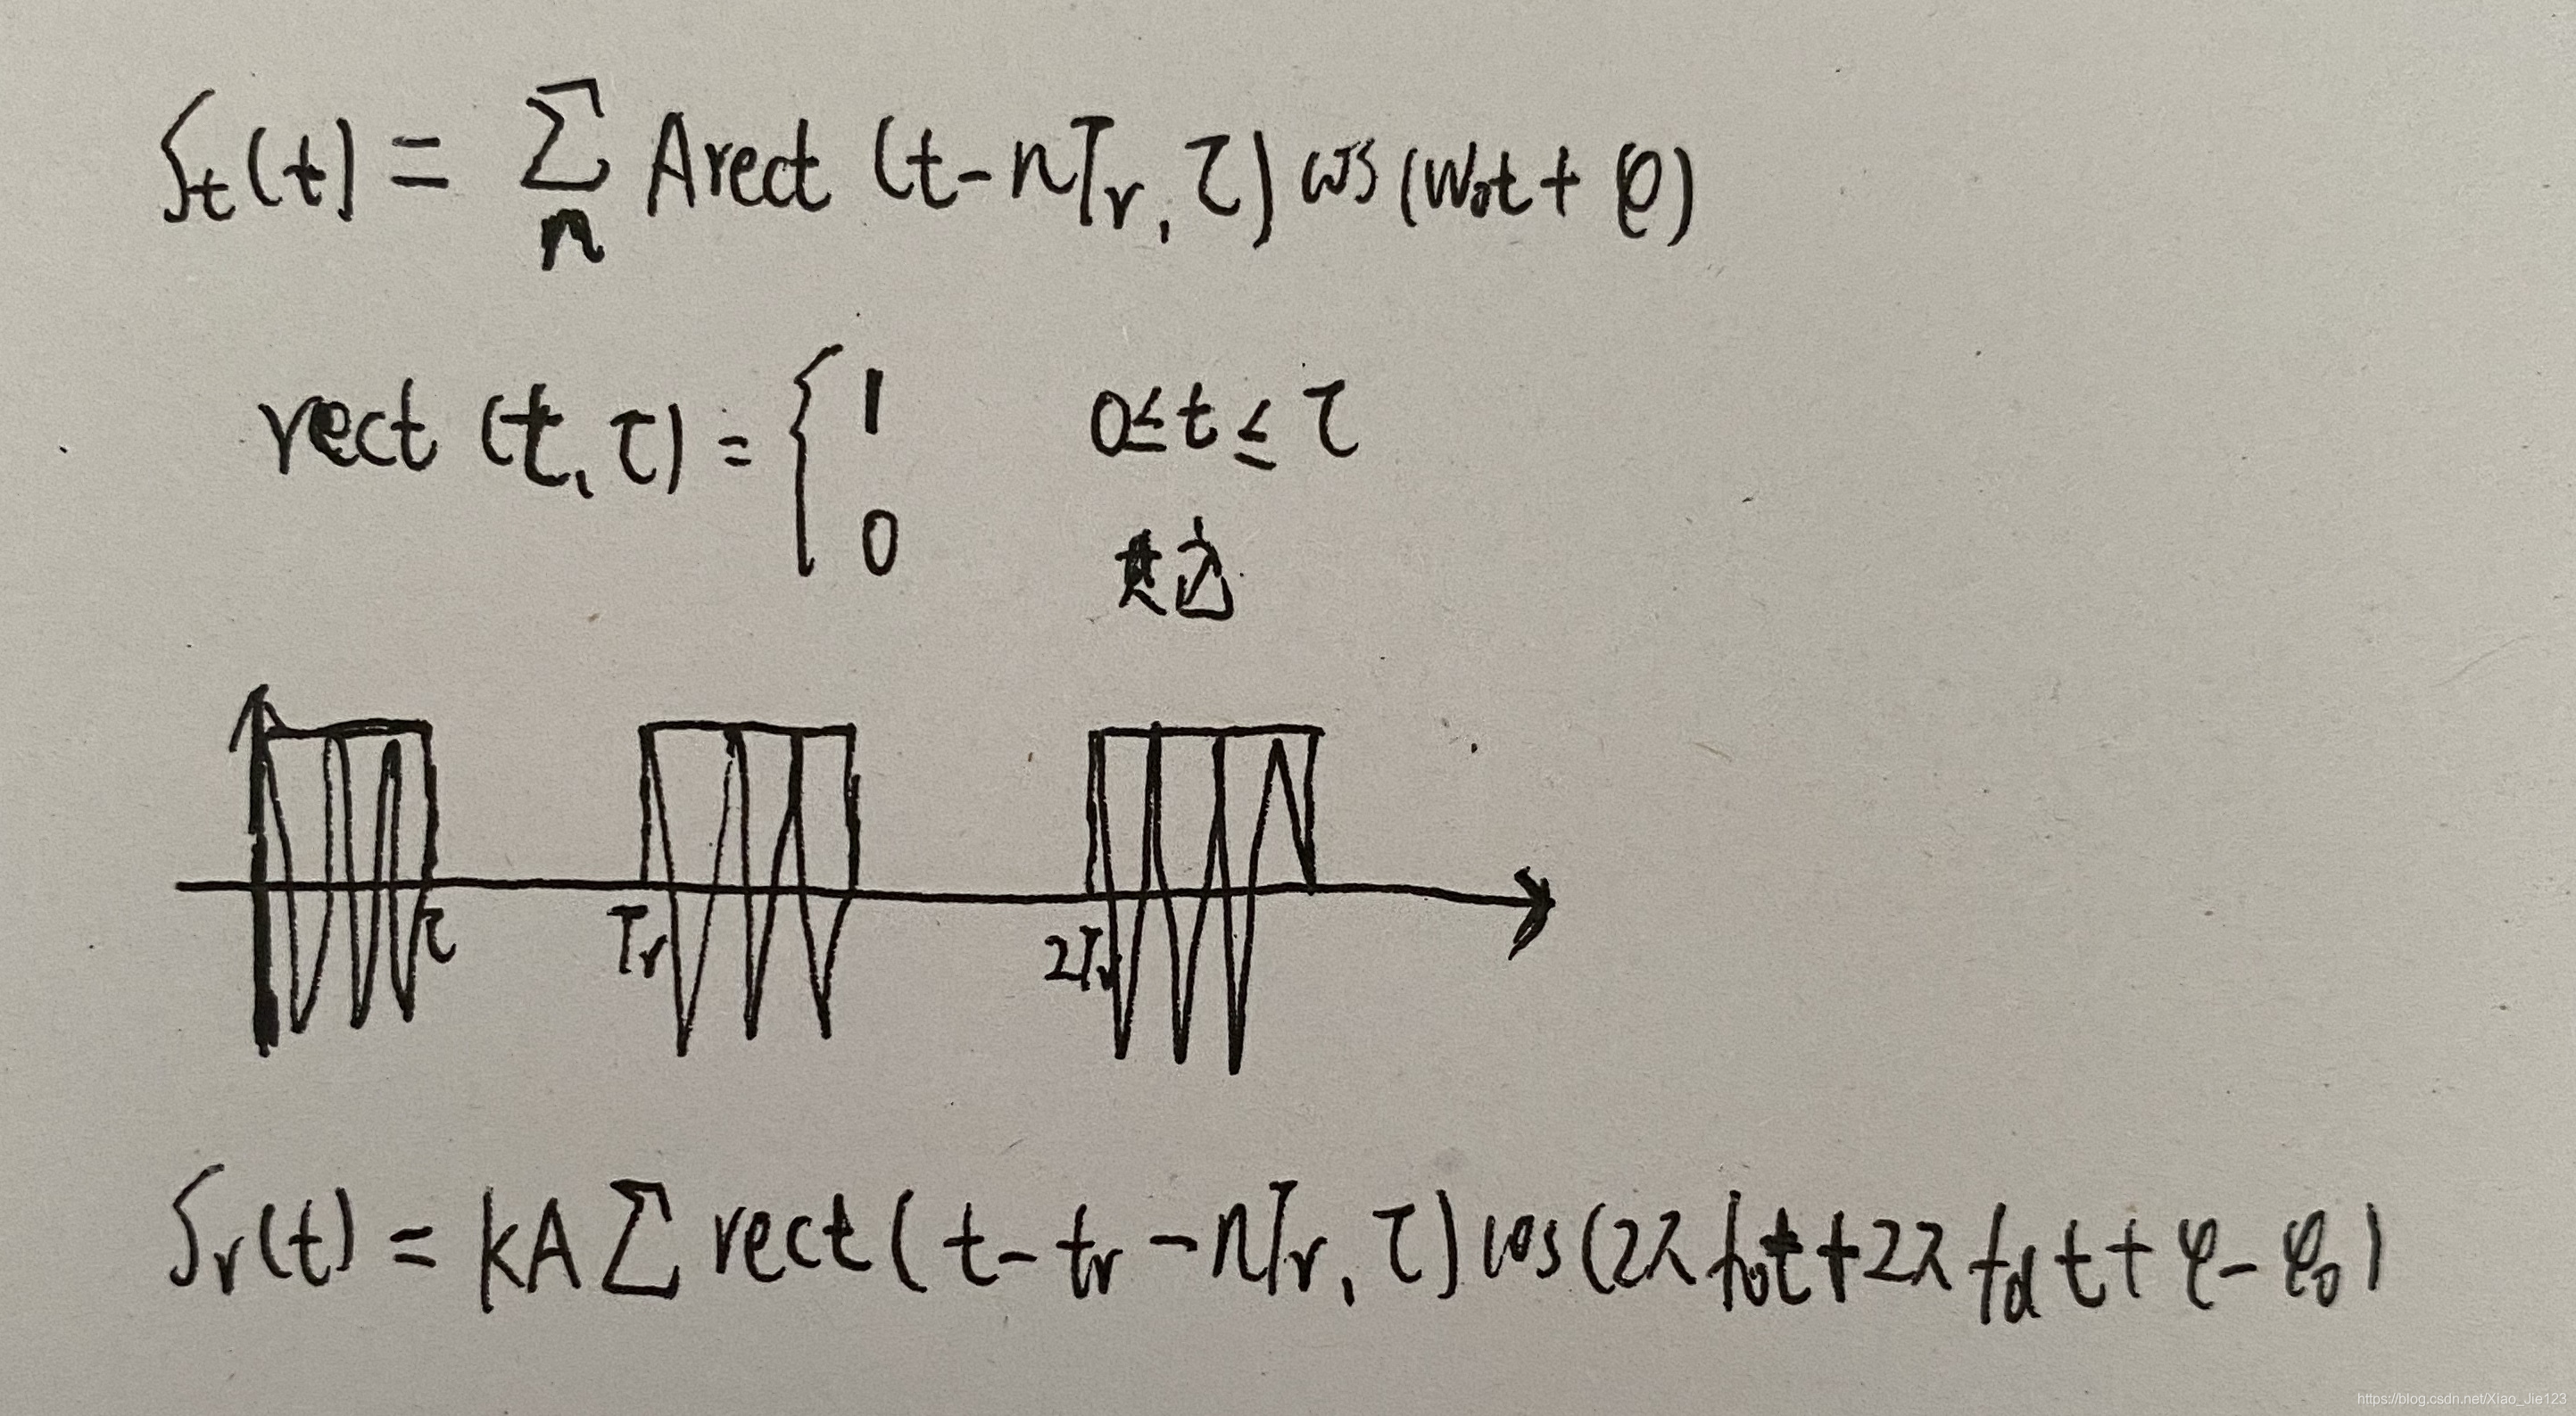 St(t) = ∑n Arect (t-nTr, τ) cos(w0t + φ)
rect (t, τ) = { 1 0≤t≤τ
0 其它
τ Tr 2Tr
Sr(t) = kA∑ rect(t-tr-nTr, τ) cos(2πf0t+2πfdt+φ-φ0)
https://blog.csdn.net/Xiao_Jie123